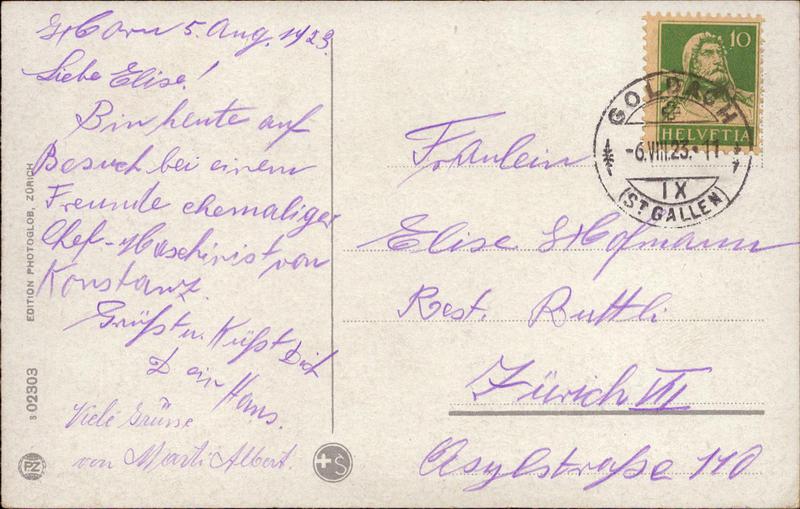 Horn 5. Aug. 1923.
Liebe Elise!
Bin heute auf
Besuch bei einem
Freunde ehemaliger
Chef-Maschinist von
Konstanz.
Grüßt u. Küßt Dich
Dein Hans.
Viele Grüsse
von Marti Albert.
EDITION PHOTOGLOB, ZÜRICH
s 02303
PZ
+ S
10
HELVETIA
GOLDACH
-6.VIII.23.-11
IX
(ST GALLEN)
Fräulein
Elise Hofmann
Rest. Buttli
Zürich VII
Asylstraße 110